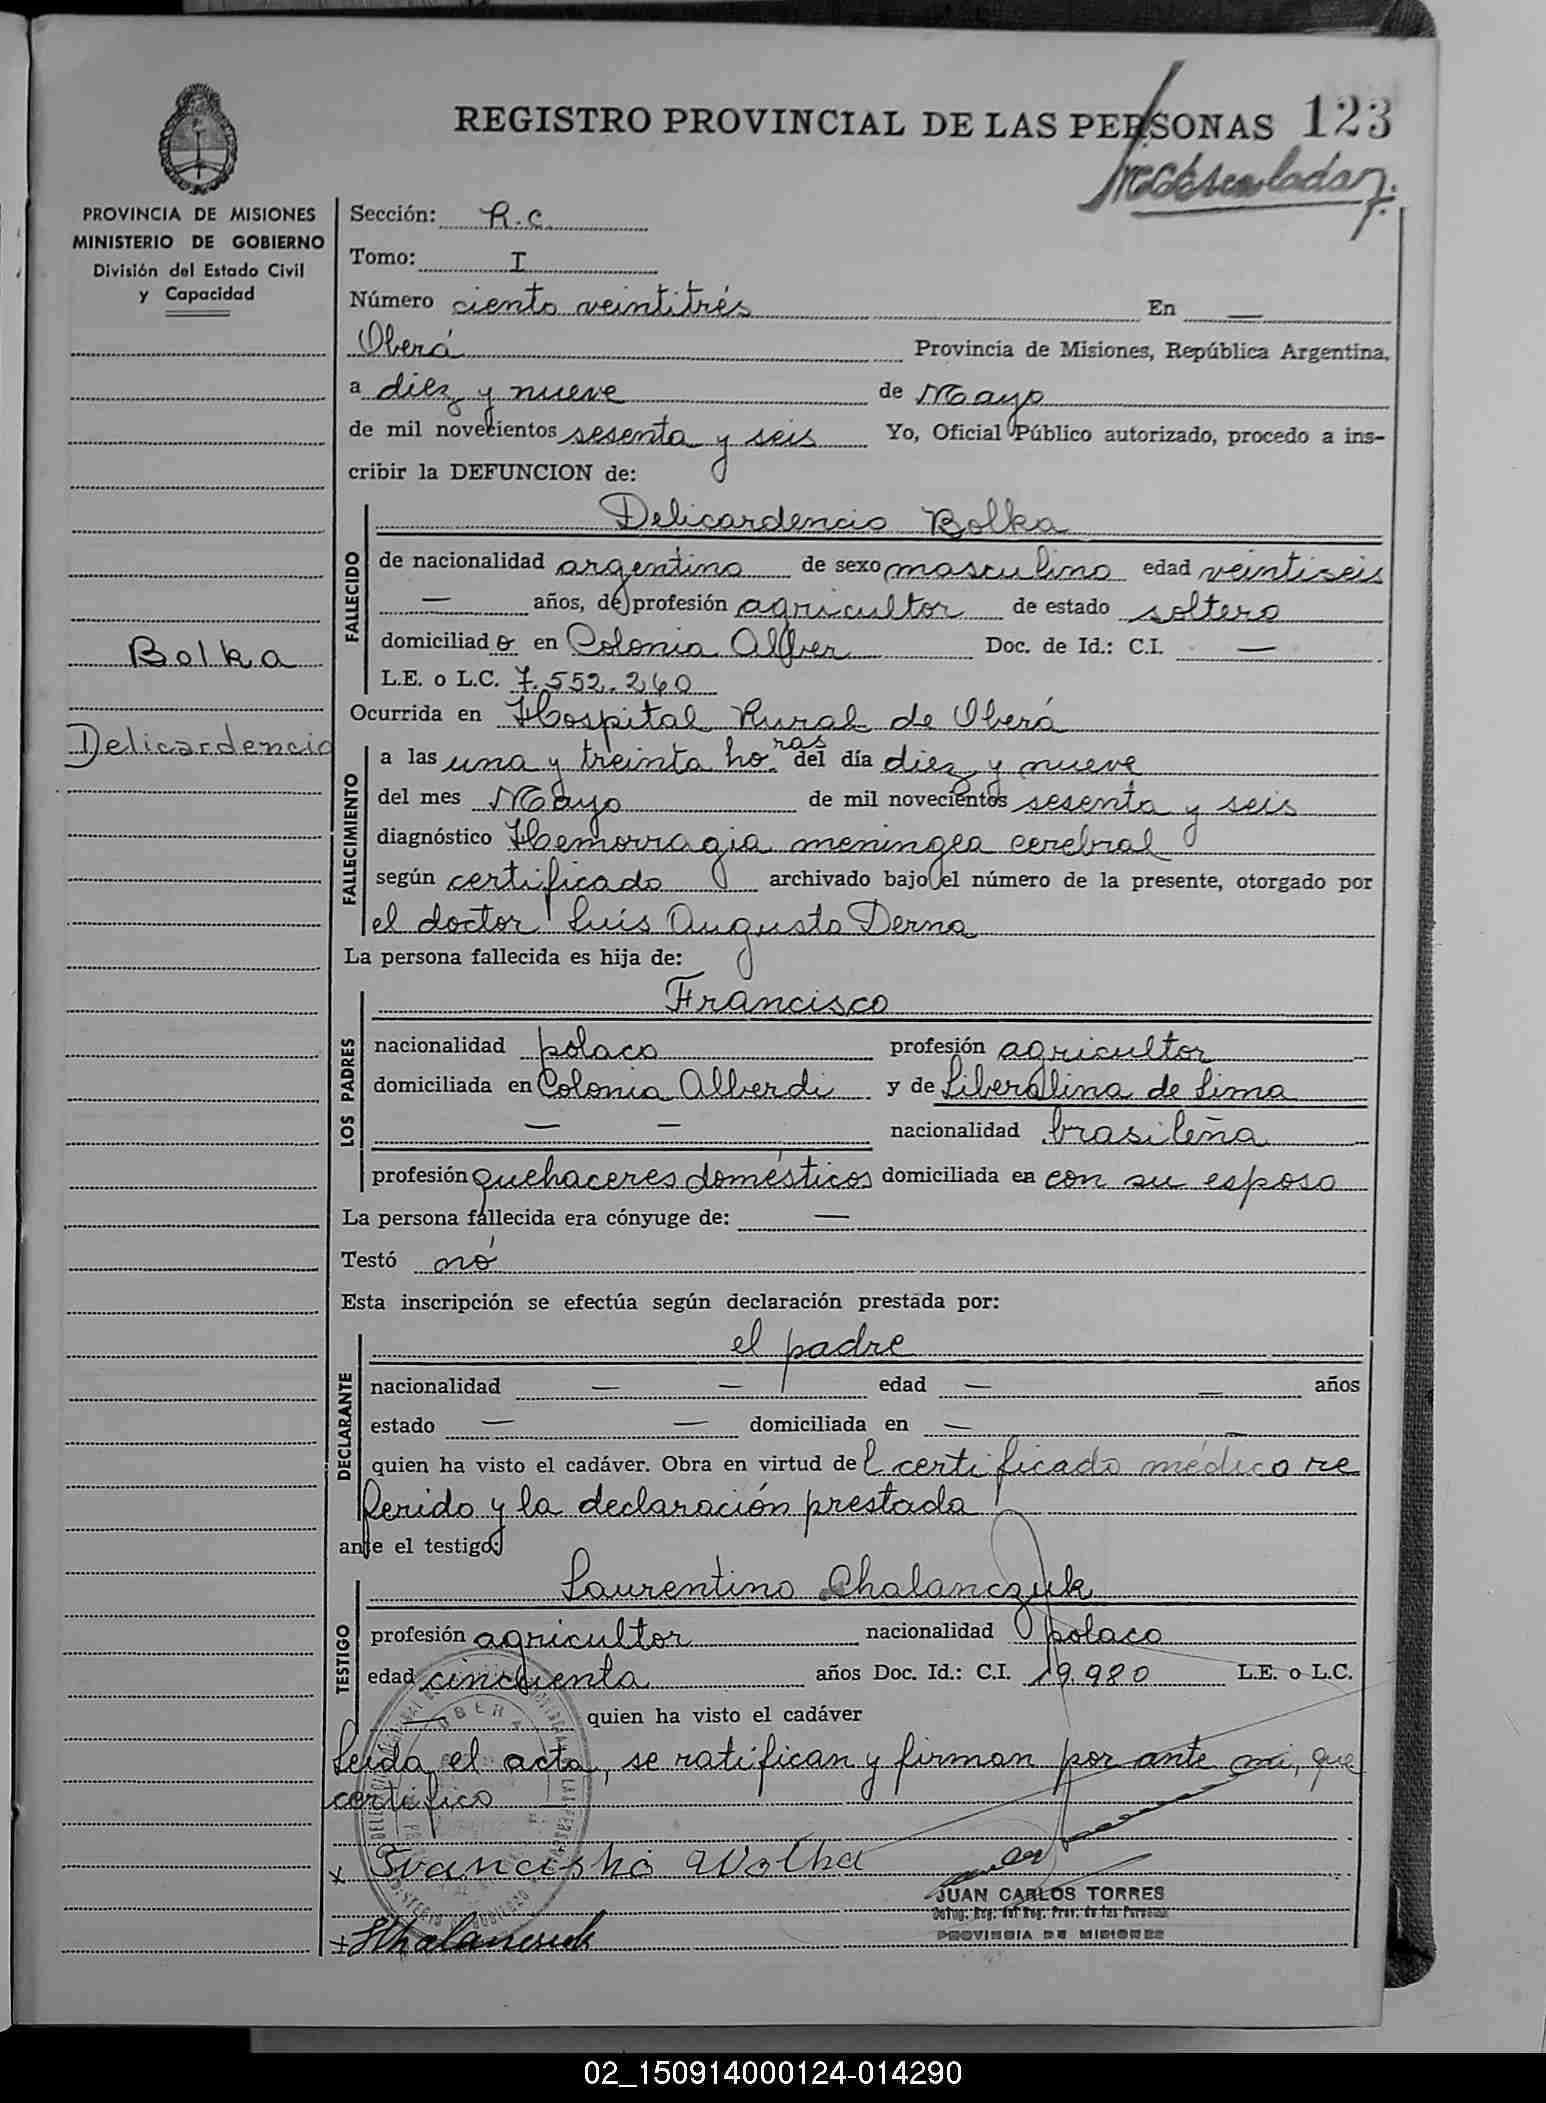 REGISTRO PROVINCIAL DE LAS PERSONAS 123
PROVINCIA DE MISIONES
MINISTERIO DE GOBIERNO
División del Estado Civil
y Capacidad
Bolka
Delicardencio
Sección: R.C.
Tomo: I
Número ciento veintitrés En —
Oberá Provincia de Misiones, República Argentina,
a diez y nueve de Mayo
de mil novecientos sesenta y seis Yo, Oficial Público autorizado, procedo a ins-
cribir la DEFUNCION de:
FALLECIDO
Delicardencio Bolka
de nacionalidad argentino de sexo masculino edad veintiseis
— años, de profesión agricultor de estado soltero
domiciliado en Colonia Doc. de Id.: C.I. —
L.E. o L.C. 7.552.260
Ocurrida en Hospital Rural de Oberá
FALLECIMIENTO
a las una y treinta horas del día diez y nueve
del mes Mayo de mil novecientos sesenta y seis
diagnóstico Hemorragia meningea cerebral
según certificado archivado bajo el número de la presente, otorgado por
el doctor Luis Augusto Derna
La persona fallecida es hija de:
LOS PADRES
Francisco
nacionalidad polaco profesión agricultor
domiciliada en Colonia Alberdi y de Liberalina de Lima
— — nacionalidad brasileña
profesión quehaceres domésticos domiciliada en con su esposo
La persona fallecida era cónyuge de: —
Testó nó
Esta inscripción se efectúa según declaración prestada por:
DECLARANTE
el padre
nacionalidad — — edad — — años
estado — — domiciliada en — —
quien ha visto el cadáver. Obra en virtud del certificado médico re
ferido y la declaración prestada
ante el testigo:
TESTIGO
Laurentino Chalanczuk
profesión agricultor nacionalidad polaco
edad cincuenta años Doc. Id.: C.I. 19.980 L.E. o L.C.
— quien ha visto el cadáver
Leida el acta, se ratifican y firman por ante mi, que
certifico
OBERA
JUAN CARLOS TORRES
PROVINCIA DE MISIONES
02_150914000124-014290